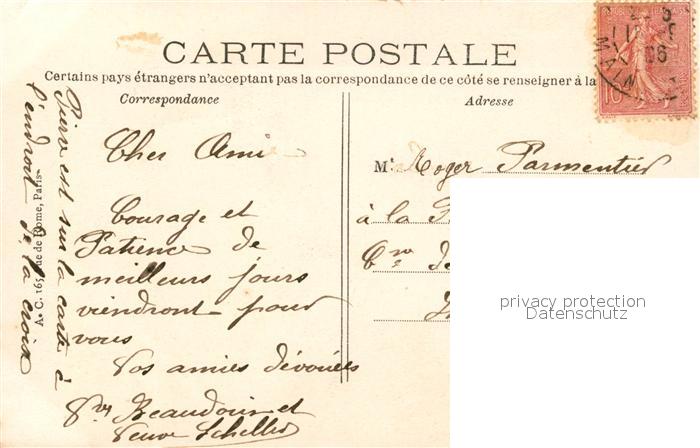 CARTE POSTALE
Certains pays étrangers n'acceptent pas la correspondance de ce côté se renseigner à la
Correspondance
Adresse
Cher Ami
Courage et
Patience de
meilleurs jours
viendront pour
vous
Vos amies dévouées
Beaudoin et
Veuve
Pierre est sur la carte à
l'endroit de la croix
A. C. 165, rue de Rome, Paris
Mr Roger Parmentier
à la
Cne de
10
MAIN
06
privacy protection
Datenschutz